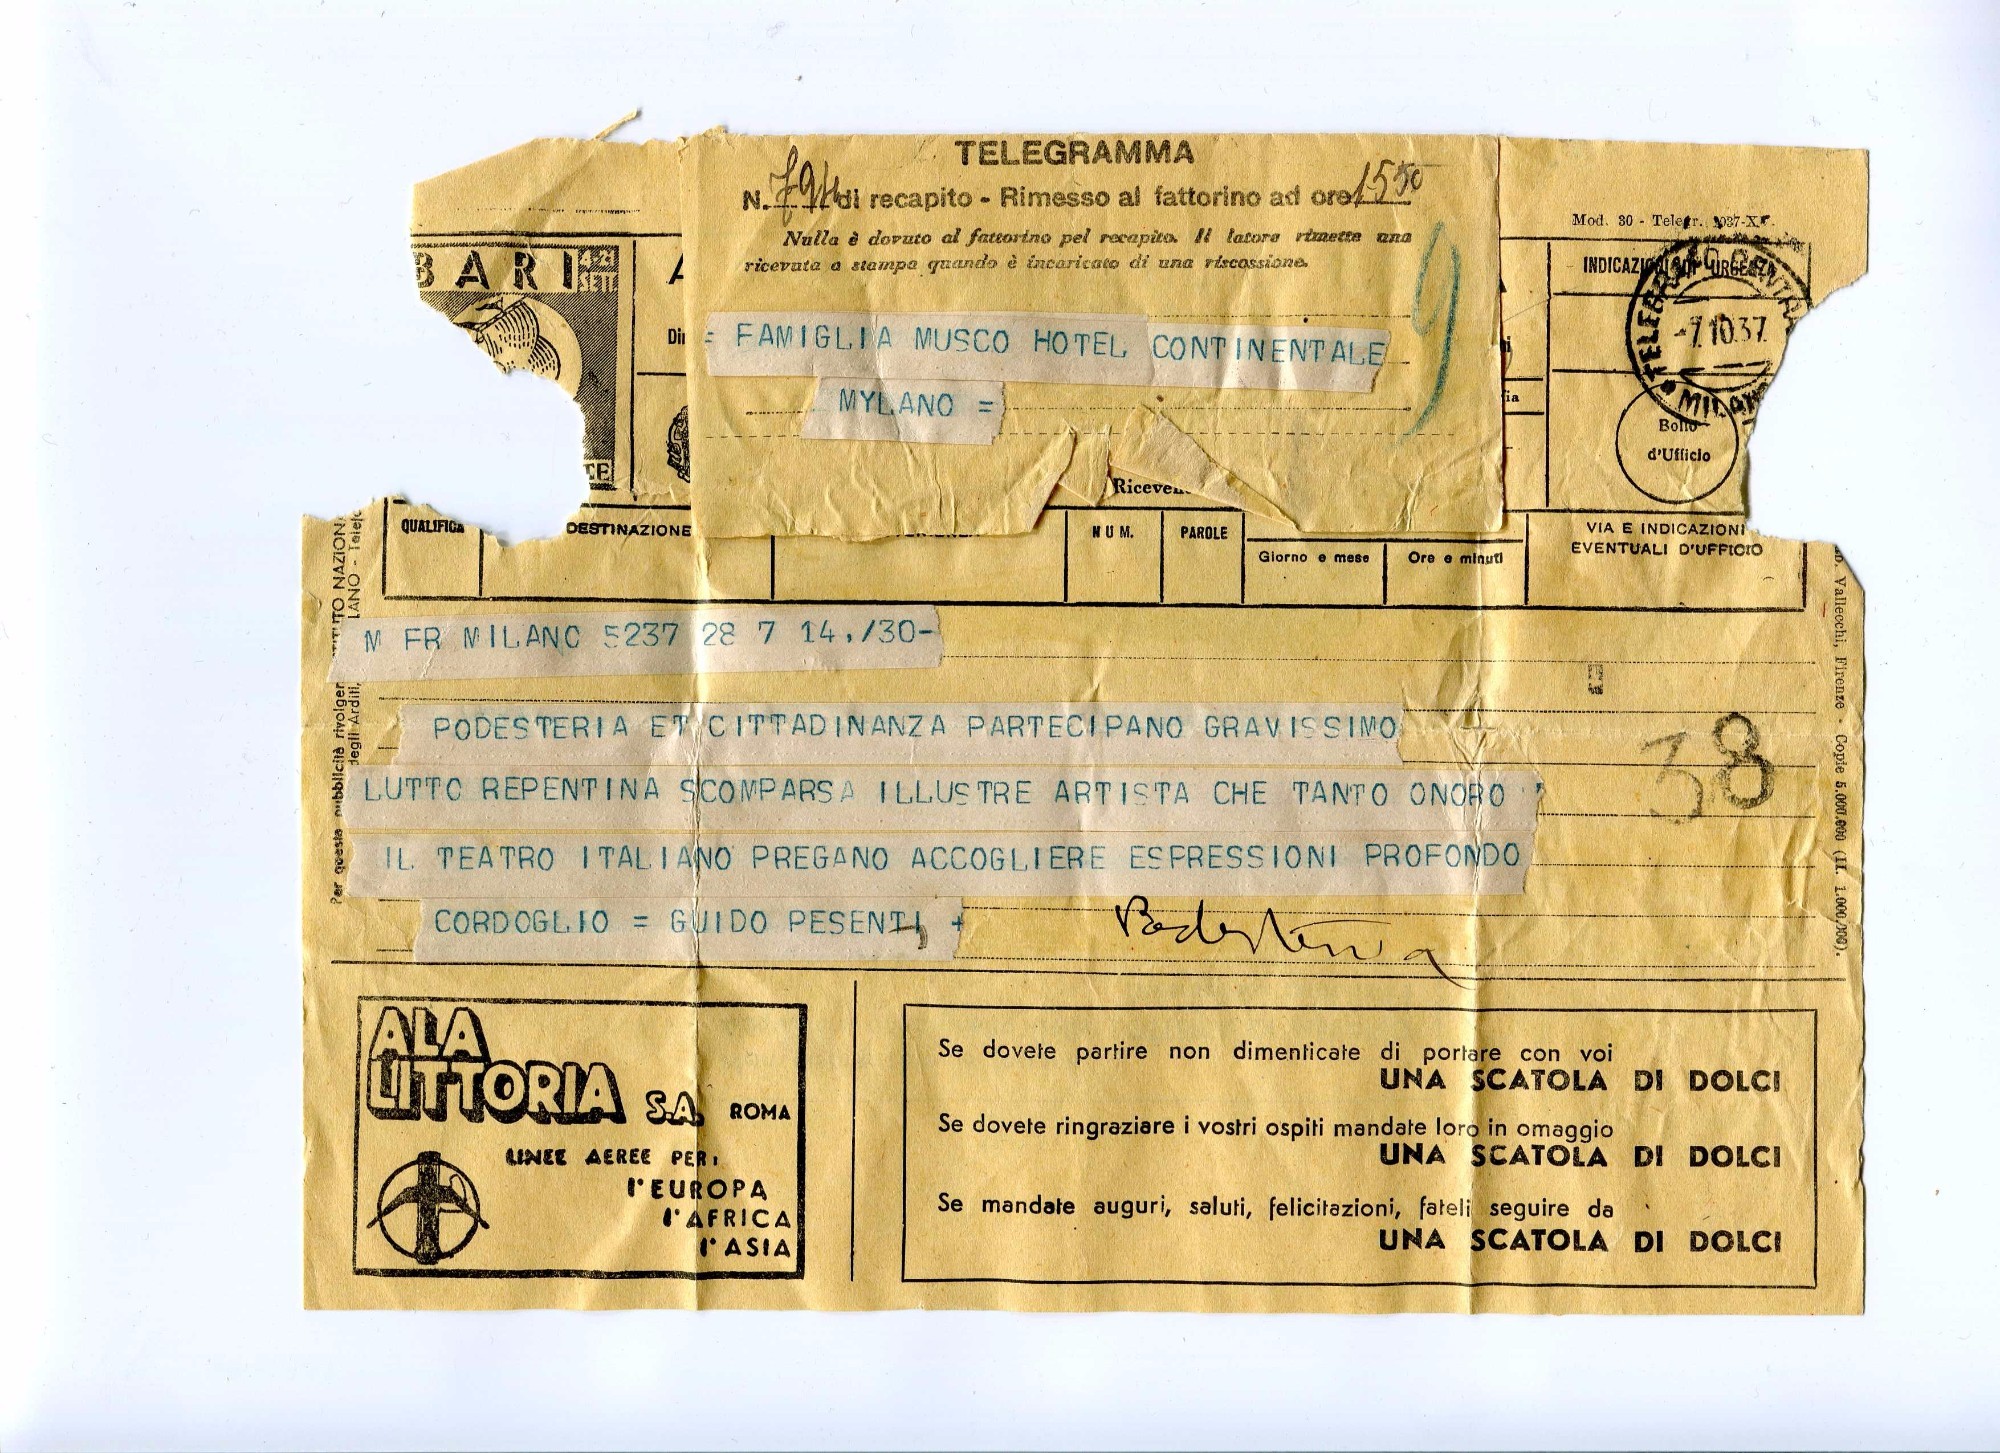 TELEGRAMMA
N. 794 di recapito - Rimesso al fattorino ad ore 15 50
Nulla è dovuto al fattorino pel recapito. Il latore rimette una
ricevuta a stampa quando è incaricato di una riscossione.
9
Mod. 30 - Telegr. 1937-XV
BARI
SETT
INDICAZIONI DI URGENZA
TELEGRAFO CENTRA
-7.10.37.
MILAN
Bollo
d'Ufficio
= FAMIGLIA MUSCO HOTEL CONTINENTALE
MYLANO =
QUALIFICA
DESTINAZIONE
NUM.
PAROLE
Giorno e mese
Ore e minuti
VIA E INDICAZIONI
EVENTUALI D'UFFICIO
M FR MILANO 5237 28 7 14,/30-
PODESTERIA ET CITTADINANZA PARTECIPANO GRAVISSIMO
LUTTO REPENTINA SCOMPARSA ILLUSTRE ARTISTA CHE TANTO ONORO '
IL TEATRO ITALIANO PREGANO ACCOGLIERE ESPRESSIONI PROFONDO
CORDOGLIO = GUIDO PESENTI, +
Podesteria
38
Per questa pubblicità rivolger
degli Arditi,
Vallecchi, Firenze - Copie 5.000.000
ALA
LITTORIA S.A. ROMA
LINEE AEREE PER:
l'EUROPA
l'AFRICA
l'ASIA
Se dovete partire non dimenticate di portare con voi
UNA SCATOLA DI DOLCI
Se dovete ringraziare i vostri ospiti mandate loro in omaggio
UNA SCATOLA DI DOLCI
Se mandate auguri, saluti, felicitazioni, fateli seguire da
UNA SCATOLA DI DOLCI